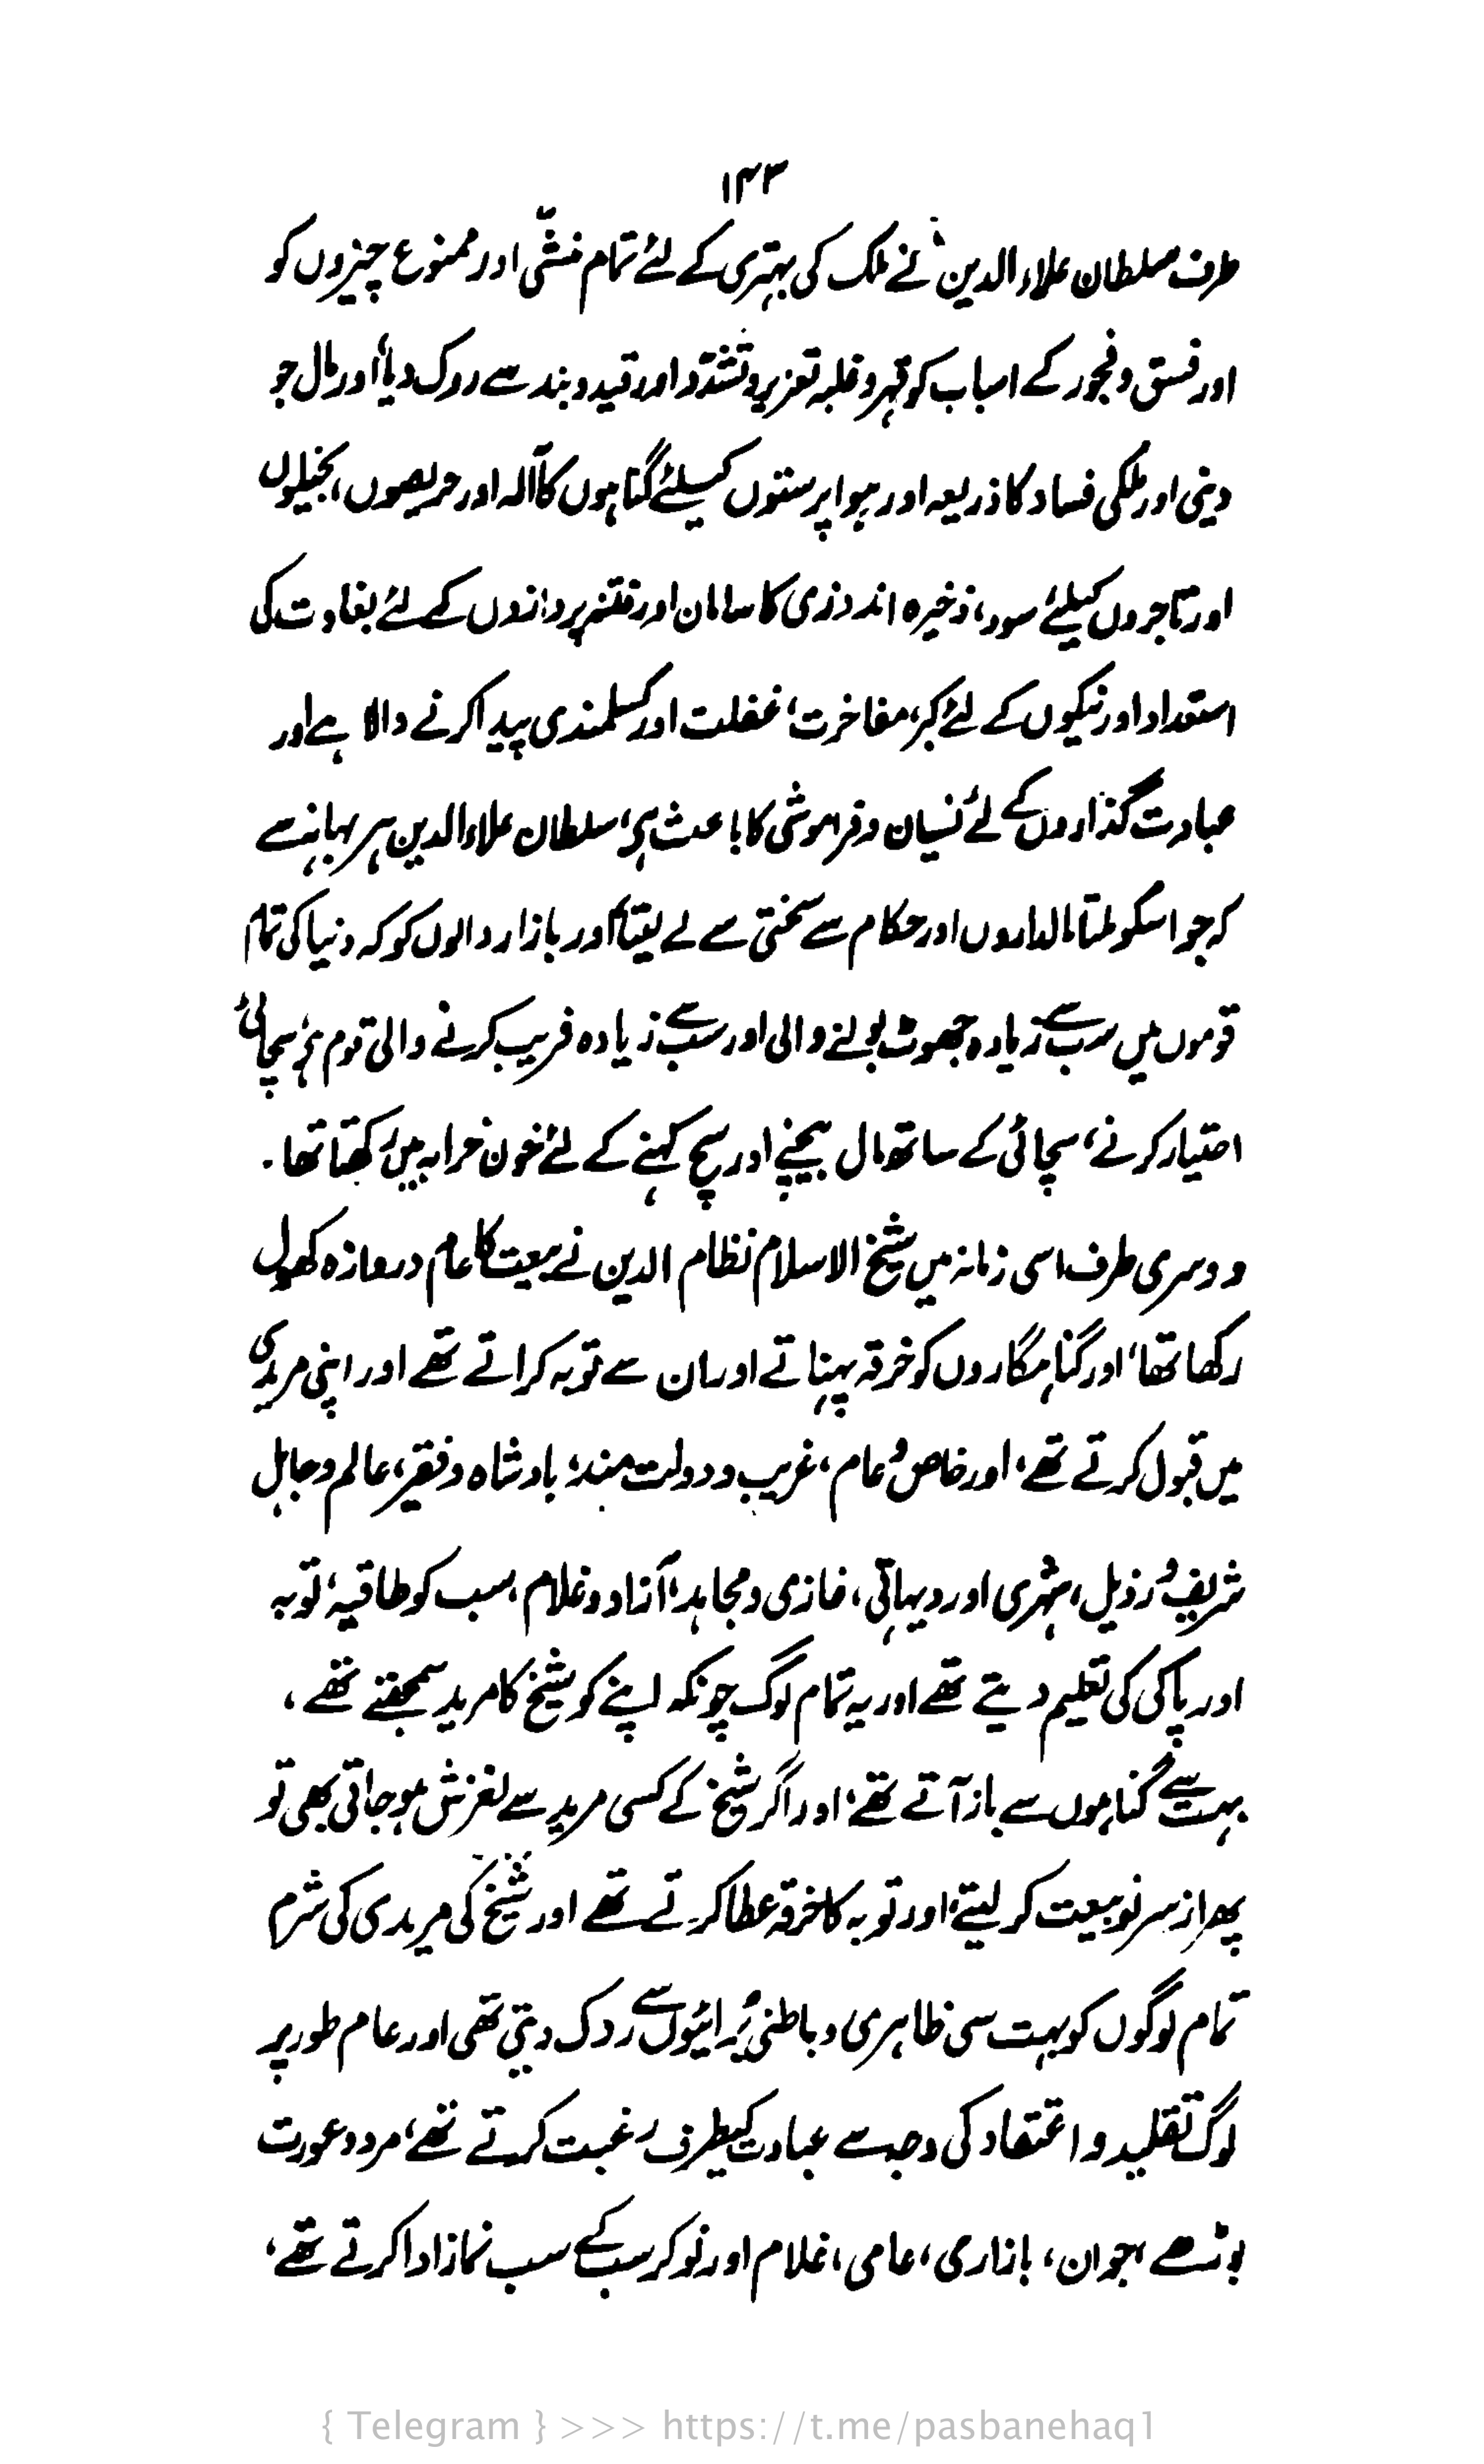 ۱۴۳
طرف سلطان علاء الدین نے ملک کی بہتری کے لئے تمام منشّی اور ممنوع چیزوں کو
اور فسق و فجور کے اسباب کو قہر و غلبہ تعزیر و تشدّد اور قید و بند سے روک دیا، اور مال جو
دینی اور ملکی فساد کا ذریعہ اور ہوا پرستوں کیلئے گناہوں کا آلہ اور حریصوں، بخیلوں
اور تاجروں کیلئے سود، ذخیرہ اندوزی کا سامان اور فتنہ پردازوں کے لئے بغاوت کی
استعداد اور نیکوں کے لئے کبر، مفاخرت، غفلت اور کسلمندی پیدا کرنے والا ہے اور
عبادت گذاروں کے لئے نسیان و فراموشی کا باعث ہی، سلطان علاء الدین ہر بہانے سے
کہ جو اسکو ملتا مالداروں اور حکام سے سختی سے لے لیتا، اور بازار والوں کو کہ دنیا کی تمام
قوموں میں سب سے زیادہ جھوٹ بولنے والی اور سب سے زیادہ فریب کرنے والی قوم ہی، سچائی
اختیار کرنے، سچائی کے ساتھ مال بیچنے اور سچ کہنے کے لئے خون خرابہ میں رکھتا تھا۔
دوسری طرف اسی زمانہ میں شیخ الاسلام نظام الدین نے بیعت کا عام دروازہ کھول
رکھا تھا، اور گناہگاروں کو خرقہ پہناتے اور ان سے توبہ کراتے تھے اور اپنی مریدی
میں قبول کرتے تھے، اور خاص و عام، غریب و دولت مند، بادشاہ و فقیر، عالم و جاہل
شریف و رذیل، شہری اور دیہاتی، غازی و مجاہد، آزاد و غلام، سب کو طاقیہ، توبہ
اور پاکی کی تعلیم دیتے تھے اور یہ تمام لوگ چونکہ اپنے کو شیخ کا مرید سمجھتے تھے،
بہت سے گناہوں سے باز آتے تھے، اور اگر شیخ کے کسی مرید سے لغزش ہو جاتی بھی تو
پھر از سر نو بیعت کر لیتے، اور توبہ کا خرقہ عطا کرتے تھے اور شیخ کی مریدی کی شرم
تمام لوگوں کو بہت سی ظاہری و باطنی برائیوں سے روک دیتی تھی اور عام طور پر
لوگ تقلید و اعتقاد کی وجہ سے عبادت کیطرف رغبت کرتے تھے، مرد و عورت
بوڑھے، جوان، بازاری، عامی، غلام اور نوکر سب کے سب نماز ادا کرتے تھے،
{ Telegram } >>> https://t.me/pasbanehaq1